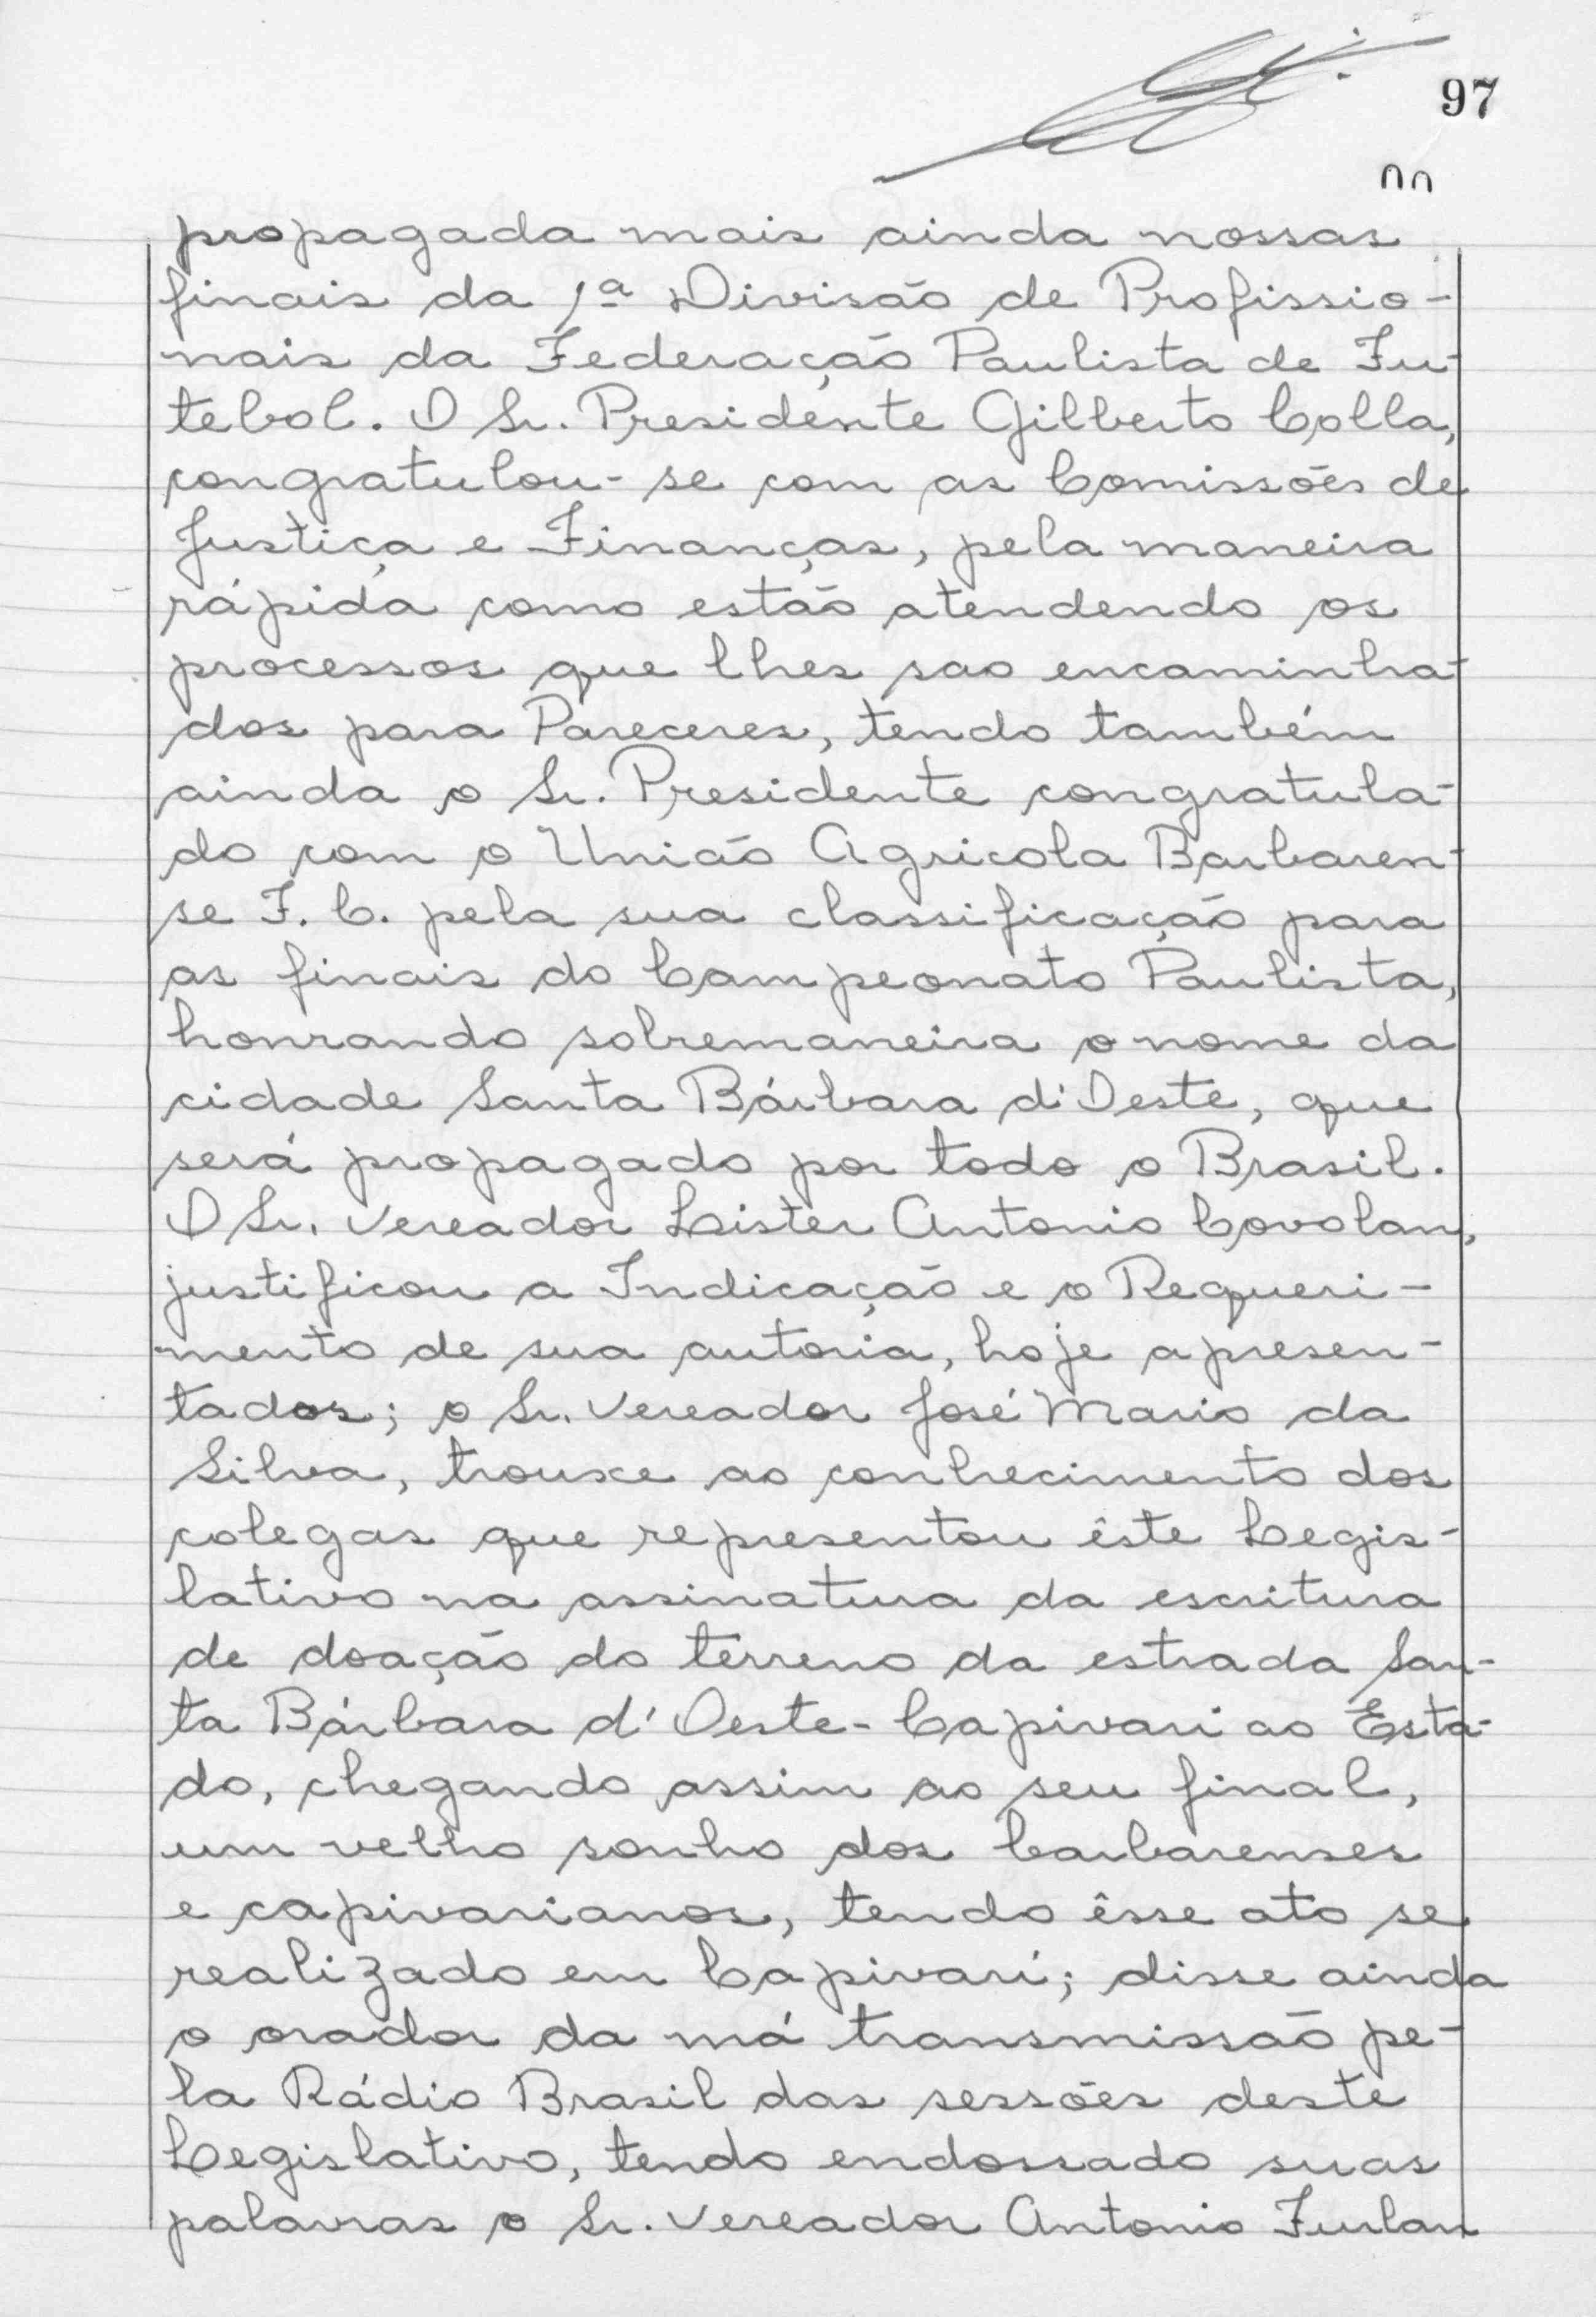 97
propagada mais ainda nossas
finais da 1ª Divisão de Profissio-
nais da Federação Paulista de Fu-
tebol. O Sr. Presidente Gilberto Colla,
congratulou-se com as Comissões de
Justiça e Finanças, pela maneira
rápida como estão atendendo os
processos que lhes sao encaminha-
dos para Pareceres, tendo também
ainda o Sr. Presidente congratula-
do com o União Agricola Barbaren-
se F. C. pela sua classificação para
as finais do Campeonato Paulista,
honrando sobremaneira o nome da
cidade Santa Bárbara d'Oeste, que
será propagado por todo o Brasil.
O Sr. Vereador Lister Antonio Covolan,
justificou a Indicação e o Requeri-
mento de sua autoria, hoje apresen-
tados; o Sr. Vereador José Mario da
Silva, trouxe ao conhecimento dos
colegas que representou êste Legis-
lativo na assinatura da escritura
de doação do terreno da estrada San-
ta Bárbara d'Oeste-Capivari ao Esta-
do, chegando assim ao seu final,
um velho sonho dos barbarenses
e capivarianos, tendo êsse ato se
realizado em Capivari; disse ainda
o orador da má transmissão pe-
la Rádio Brasil das sessões deste
Legislativo, tendo endossado suas
palavras o Sr. Vereador Antonio Furlan